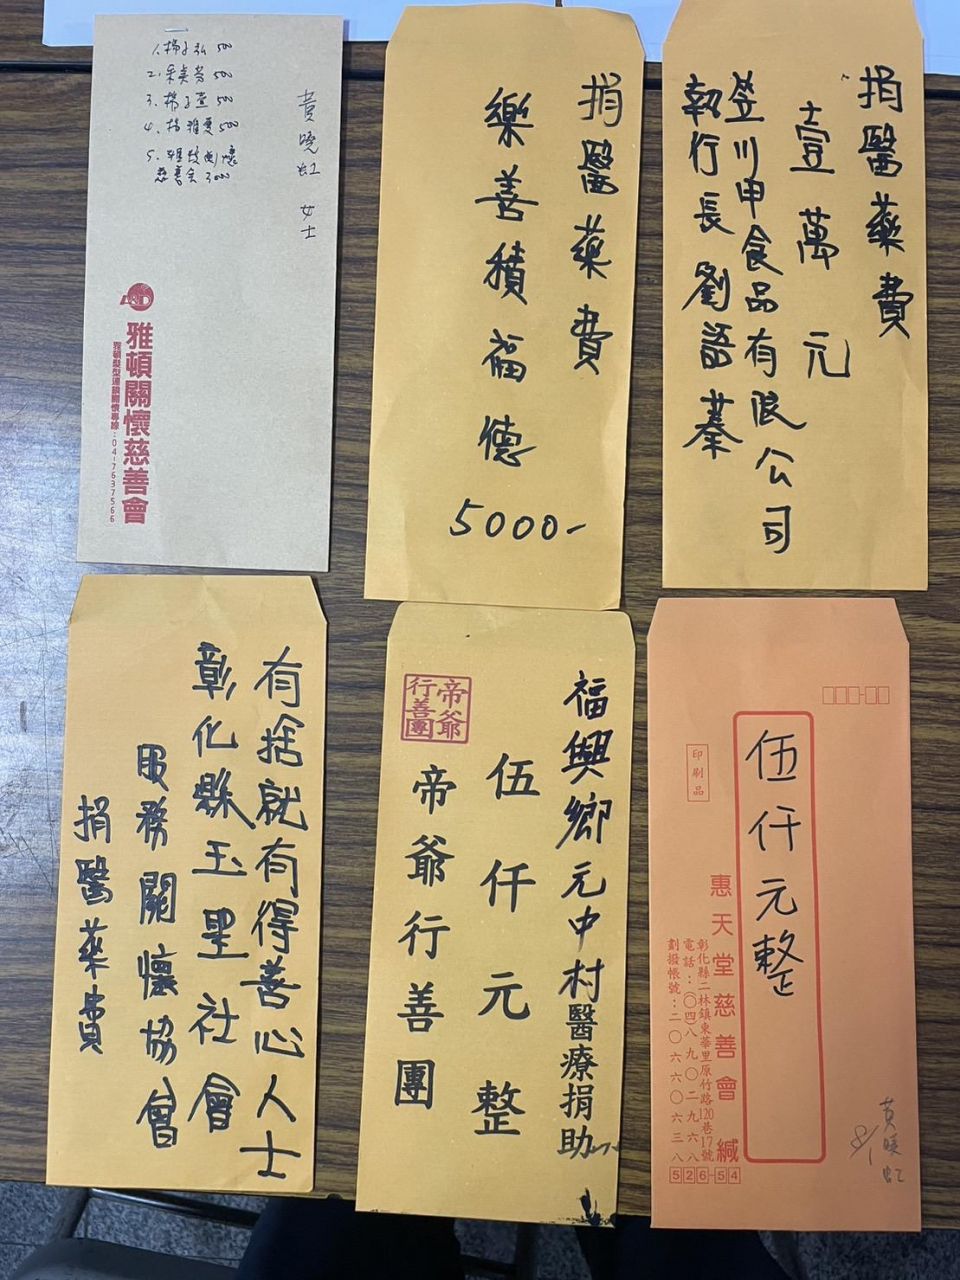 500
500
500
500
5.
慈善会 3000
黃曉虹 女士
雅頓關懷慈善會
雅頓髮型連鎖關懷專線：04-7637566
捐醫藥費
樂善積福德
5000-
捐醫藥費
壹萬元
笠川申食品有限公司
執行長劉語蓁
有捨就有得善心人士
彰化縣玉聖社會
服務關懷協會
捐醫葯費
福興鄉元中村醫療捐助
伍仟元整
帝爺行善團
帝爺
行善團
伍仟元整
印刷品
惠天堂慈善會 緘
彰化縣二林鎮東華里原竹路120巷17號
電話：(○四)八九○二九六八
劃撥帳號：二○六六○六三八
526-54
黃曉虹
8/1